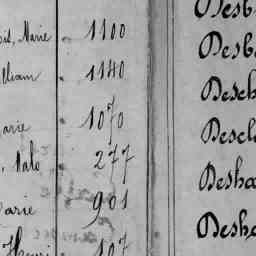 Marie 1100
lliam 1140
arie 1070
Malo 277
arie 901
Henri 107
Desb
Desb
Desch
Descl
Desha
Desha